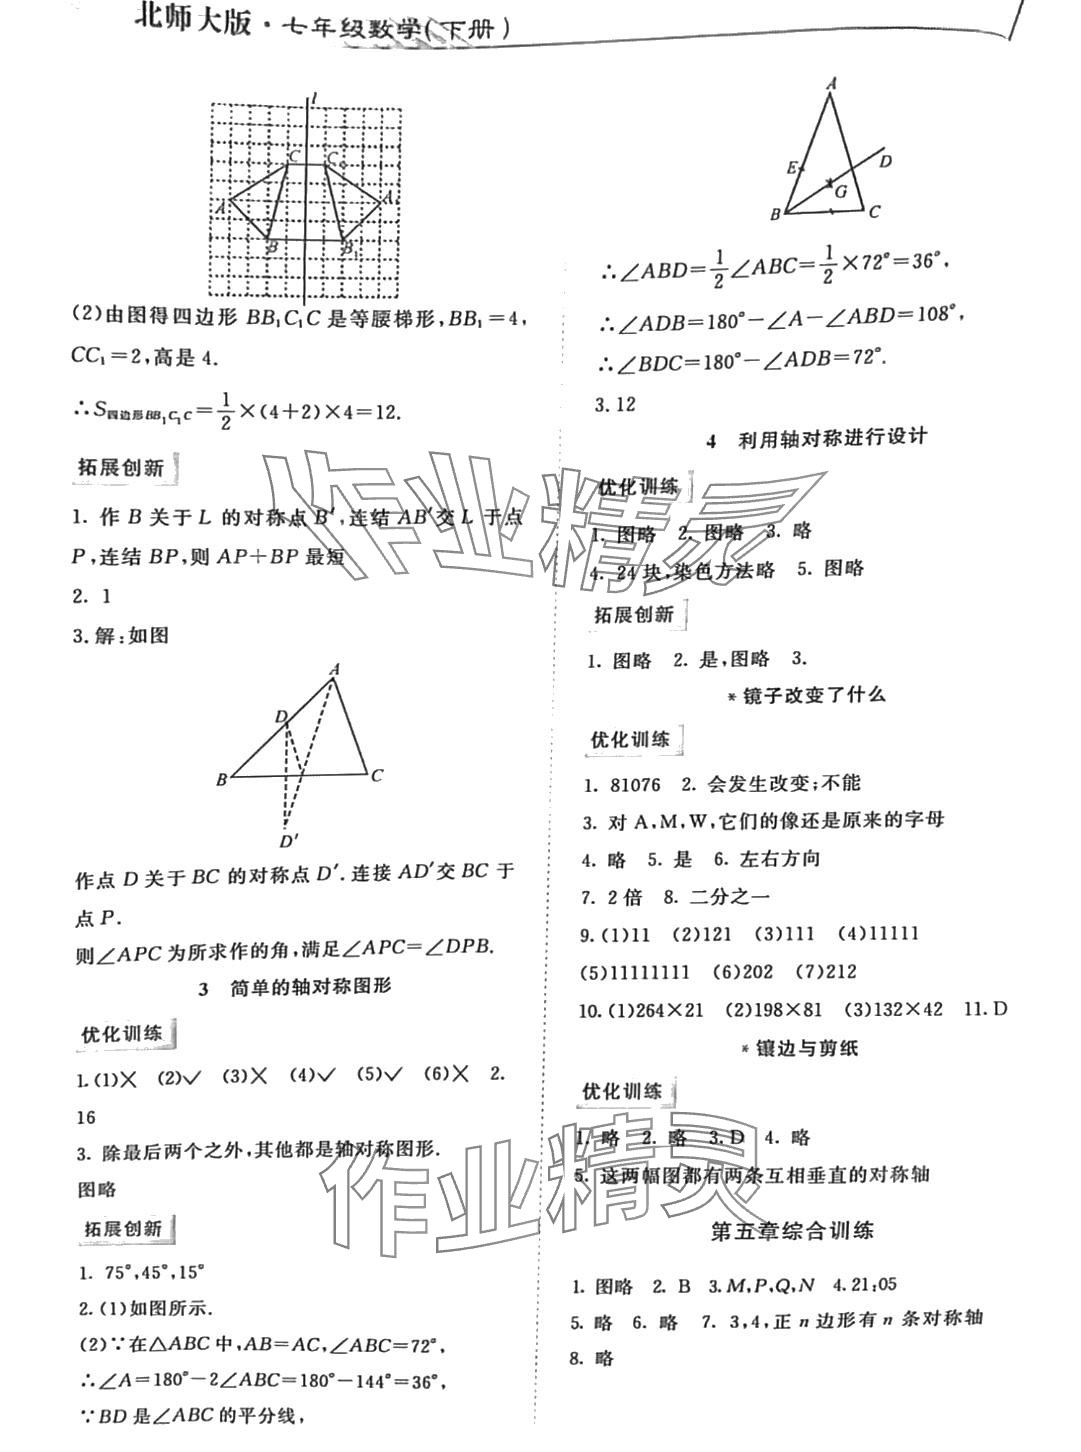 北师大版·七年级数学(下册)
l
C C₁
A A₁
B B₁
(2)由图得四边形 BB₁C₁C 是等腰梯形,BB₁=4,
CC₁=2,高是 4.
∴S四边形BB₁C₁C=1/2×(4+2)×4=12.
拓展创新
1. 作 B 关于 L 的对称点 B′,连结 AB′交 L 于点
P,连结 BP,则 AP+BP 最短
2. 1
3.解:如图
A
D
B C
D′
作点 D 关于 BC 的对称点 D′.连接 AD′交 BC 于
点 P.
则∠APC 为所求作的角,满足∠APC=∠DPB.
3 简单的轴对称图形
优化训练
1.(1)× (2)✓ (3)× (4)✓ (5)✓ (6)× 2.
16
3. 除最后两个之外,其他都是轴对称图形.
图略
拓展创新
1. 75°,45°,15°
2.(1)如图所示.
(2)∵在△ABC 中,AB=AC,∠ABC=72°,
∴∠A=180°-2∠ABC=180°-144°=36°,
∵BD 是∠ABC 的平分线,
A
E D
G
B C
∴∠ABD=1/2∠ABC=1/2×72°=36°,
∴∠ADB=180°-∠A-∠ABD=108°,
∴∠BDC=180°-∠ADB=72°.
3.12
4 利用轴对称进行设计
优化训练
1. 图略 2. 图略 3. 略
4. 24 块,染色方法略 5. 图略
拓展创新
1. 图略 2. 是,图略 3.
*镜子改变了什么
优化训练
1. 81076 2. 会发生改变;不能
3. 对 A,M,W,它们的像还是原来的字母
4. 略 5. 是 6. 左右方向
7. 2 倍 8. 二分之一
9.(1)11 (2)121 (3)111 (4)11111
(5)11111111 (6)202 (7)212
10.(1)264×21 (2)198×81 (3)132×42 11.D
*镶边与剪纸
优化训练
1. 略 2. 略 3.D 4. 略
5. 这两幅图都有两条互相垂直的对称轴
第五章综合训练
1. 图略 2. B 3.M,P,Q,N 4.21:05
5. 略 6. 略 7. 3,4,正 n 边形有 n 条对称轴
8. 略
作业精灵
作业精灵